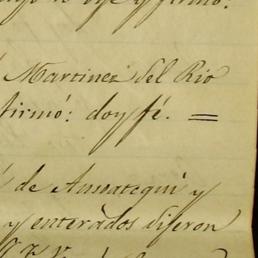 y firmó:
Martinez del Rio
firmó: doy fé. =
de Amoategui y
y enterados dijeron